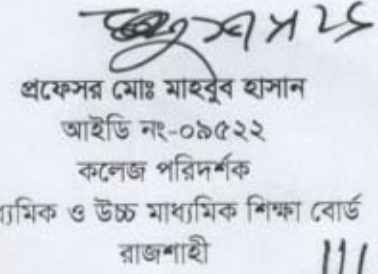 প্রফেসর মোঃ মাহবুব হাসান
আইডি নং-০৯৫২২
কলেজ পরিদর্শক
ও উচ্চ মাধ্যমিক শিক্ষা বোর্ড
রাজশাহী